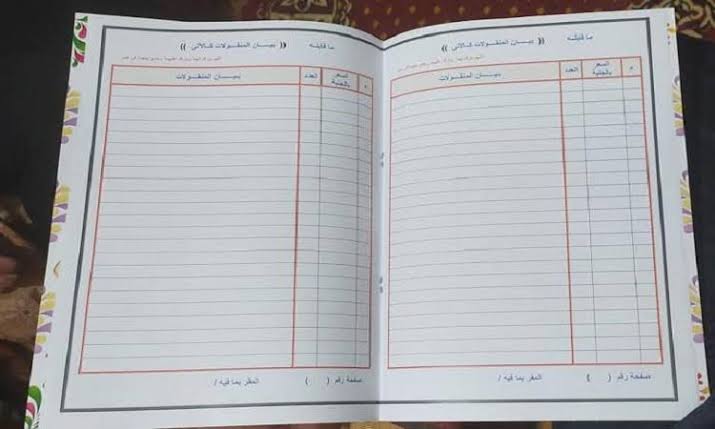 ما قبله (( بيـــان المنقــولات كـالآتى ))
م السعر بالجنية العدد بيـــــان المنقـــولات
صفحة رقم ( ) المقر بما فيه /
ما قبله (( بيـــان المنقــولات كـالآتى ))
م السعر بالجنية العدد بيـــــان المنقـــولات
صفحة رقم ( ) المقر بما فيه /